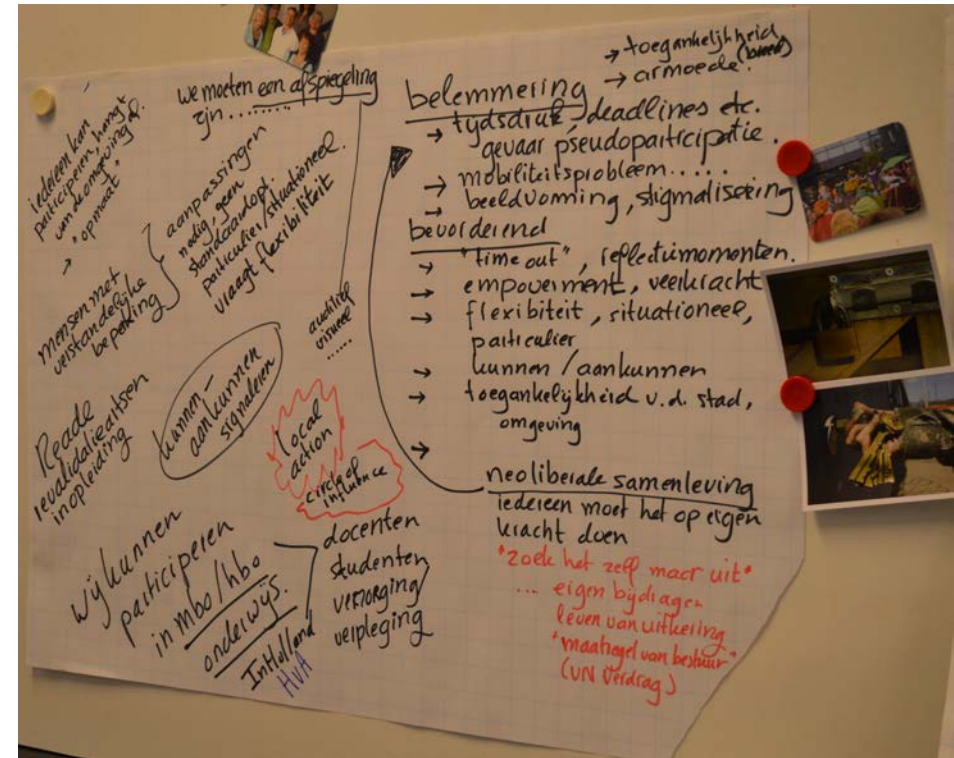 we moeten een afspiegeling
zijn........
iedereen kan
participeren, hangt
van de omgeving af.
"op maat"
→
mensen met
verstandelijke
beperking
aanpassingen
nodig, geen
standaardopt.
particulier/situationeel.
vraagt flexibiliteit
auditief
visueel
......
kunnen-
aankunnen
signaleren
Reade
revalidatieartsen
in opleiding
local
action
circle of
influence
wij kunnen
participeren
in mbo/hbo
onderwijs.
InHolland
HvA
docenten
studenten
verzorging
verpleging
→ toegankelijkheid
→ armoede. (breed)
belemmering
→ tijdsdruk, deadlines etc.
gevaar pseudoparticipatie.
→ mobiliteitsprobleem.....
→ beeldvorming, stigmatisering
bevorderend
→ "time out", reflectiemomenten.
→ empowerment, veerkracht
→ flexibiteit, situationeel,
particulier
→ kunnen/aankunnen
→ toegankelijkheid v.d. stad,
omgeving
→
neoliberale samenleving
iedereen moet het op eigen
kracht doen
"zoek het zelf maar uit"
... eigen bijdragen
leven van uitkering
"maatregel van bestuur"
(VN Verdrag)